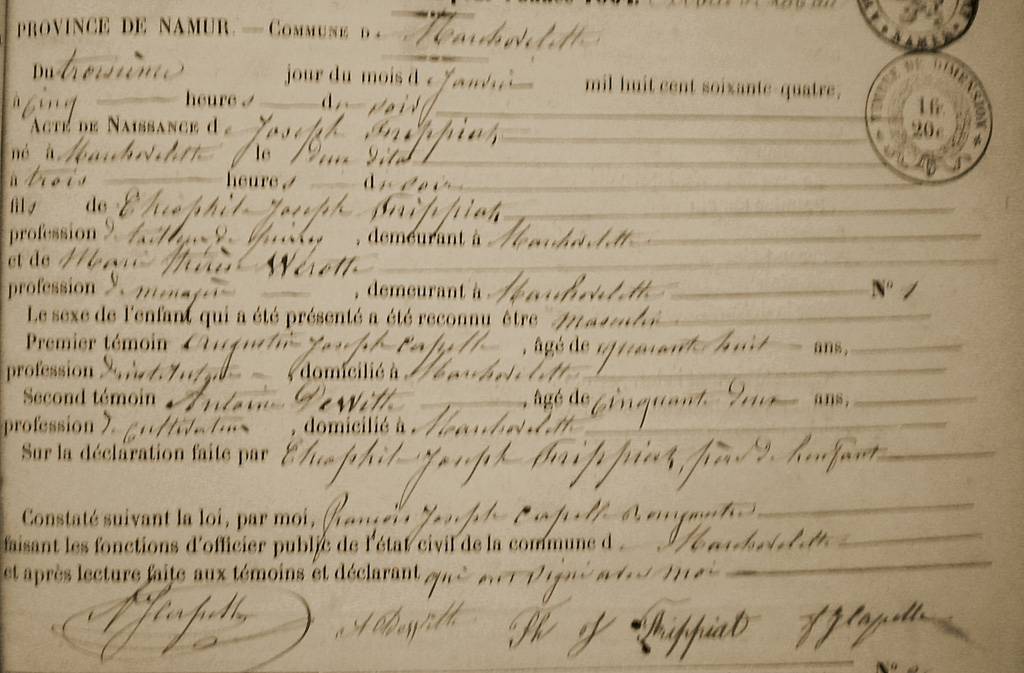 PROVINCE DE NAMUR. — COMMUNE De Marchovelette
TIMBRE DE DIMENSION
16
20c
NAMUR
Du troisième jour du mois de Janvier mil huit cent soixante quatre,
à cinq heures du soir
ACTE DE NAISSANCE de Joseph Frippiat
né à Marchovelette le deux dito
à trois heures du soir
fils de Théophile Joseph Frippiat
profession de tailleur de pierres, demeurant à Marchovelette
et de Marie Thérèse Werotte
profession de ménagère, demeurant à Marchovelette N° 1
Le sexe de l'enfant qui a été présenté a été reconnu être masculin
Premier témoin Augustin Joseph Capelle, âgé de quarante huit ans,
profession d'instituteur, domicilié à Marchovelette
Second témoin Antoine DeWitte, âgé de cinquante deux ans,
profession de cultivateur, domicilié à Marchovelette
Sur la déclaration faite par Théophile Joseph Frippiat, père de l'enfant
Constaté suivant la loi, par moi, François Joseph Capelle Bourgmestre
faisant les fonctions d'officier public de l'état civil de la commune de Marchovelette
et après lecture faite aux témoins et déclarant qui ont signé avec moi
AJCapelle A DeWitte Th J Frippiat f J Capelle